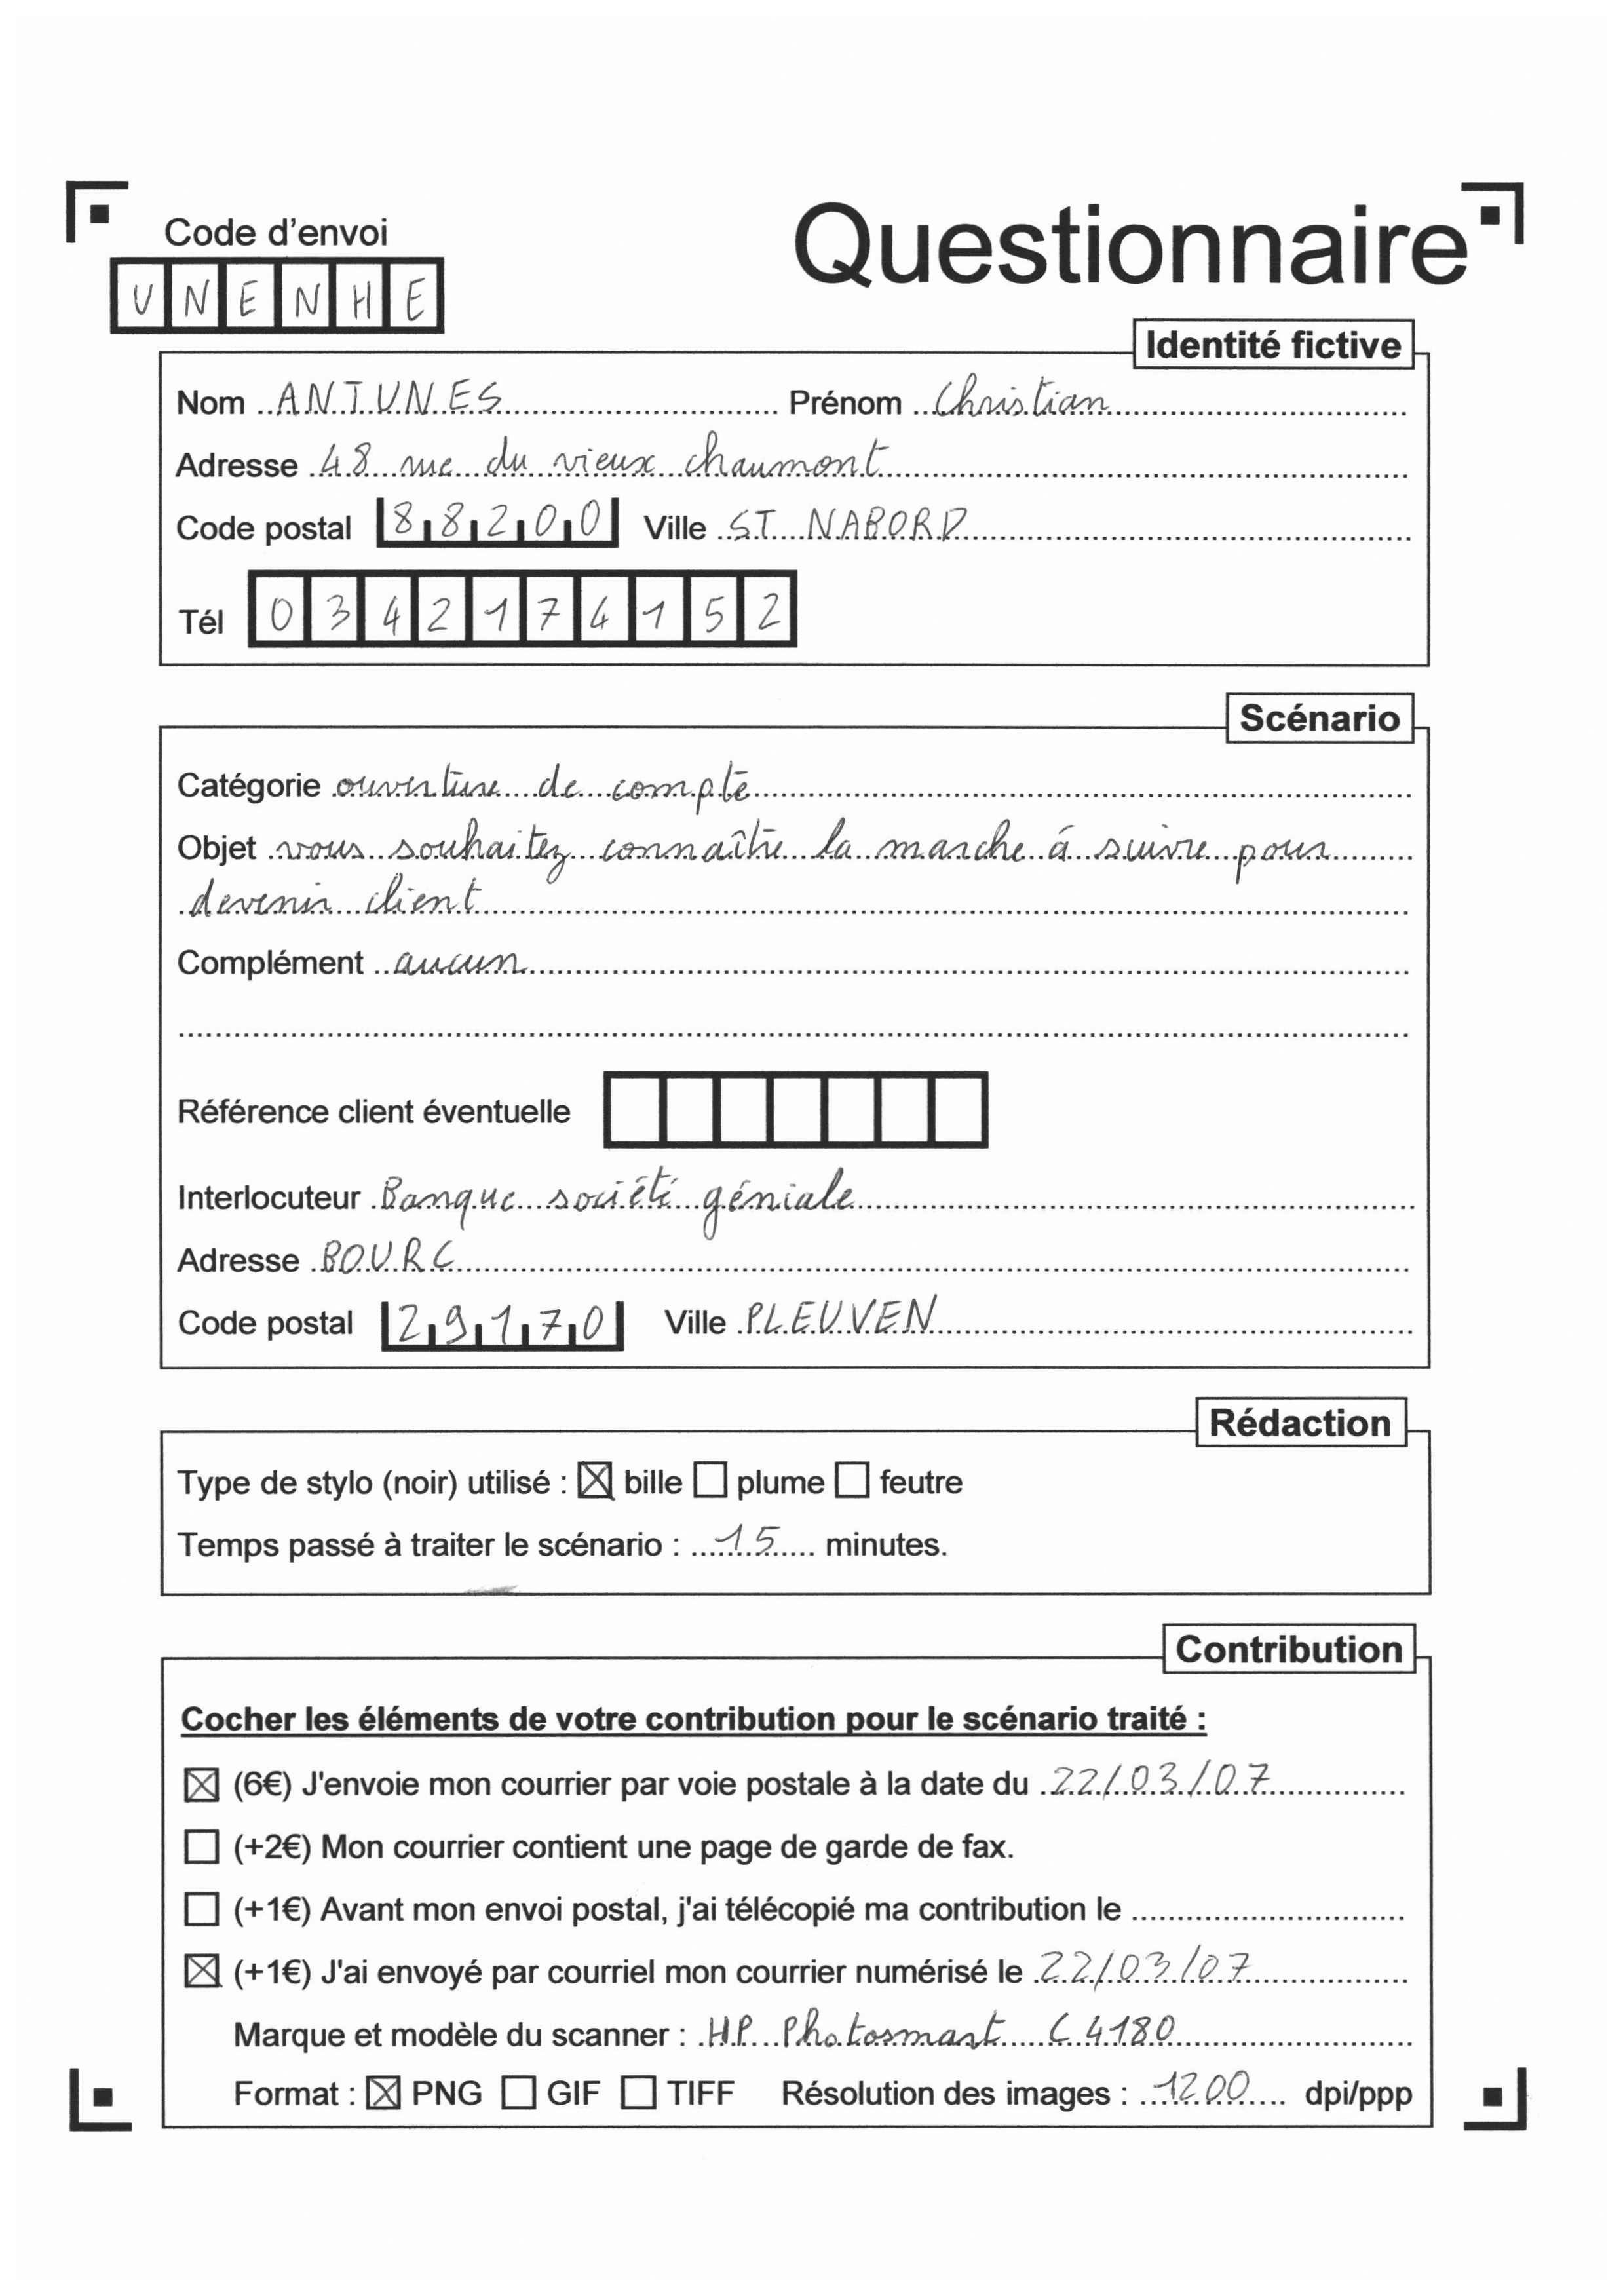 Code d'envoi
Questionnaire
UNENHE
Identité fictive
Nom ANTUNES Prénom Christian
Adresse 48 rue du vieux chaumont
Code postal 88200 Ville ST NABORD
Tél 0342174152
Scénario
Catégorie ouverture de compte
Objet vous souhaitez connaître la marche à suivre pour
devenir client
Complément aucun
Référence client éventuelle
Interlocuteur Banque société géniale
Adresse BOURG
Code postal 29170 Ville PLEUVEN
Rédaction
Type de stylo (noir) utilisé : ☒ bille ☐ plume ☐ feutre
Temps passé à traiter le scénario : 15 minutes.
Contribution
Cocher les éléments de votre contribution pour le scénario traité :
☒ (6€) J'envoie mon courrier par voie postale à la date du 22/03/07
☐ (+2€) Mon courrier contient une page de garde de fax.
☐ (+1€) Avant mon envoi postal, j'ai télécopié ma contribution le
☒ (+1€) J'ai envoyé par courriel mon courrier numérisé le 22/03/07
Marque et modèle du scanner : HP Photosmart C4180
Format : ☒ PNG ☐ GIF ☐ TIFF Résolution des images : 1200 dpi/ppp